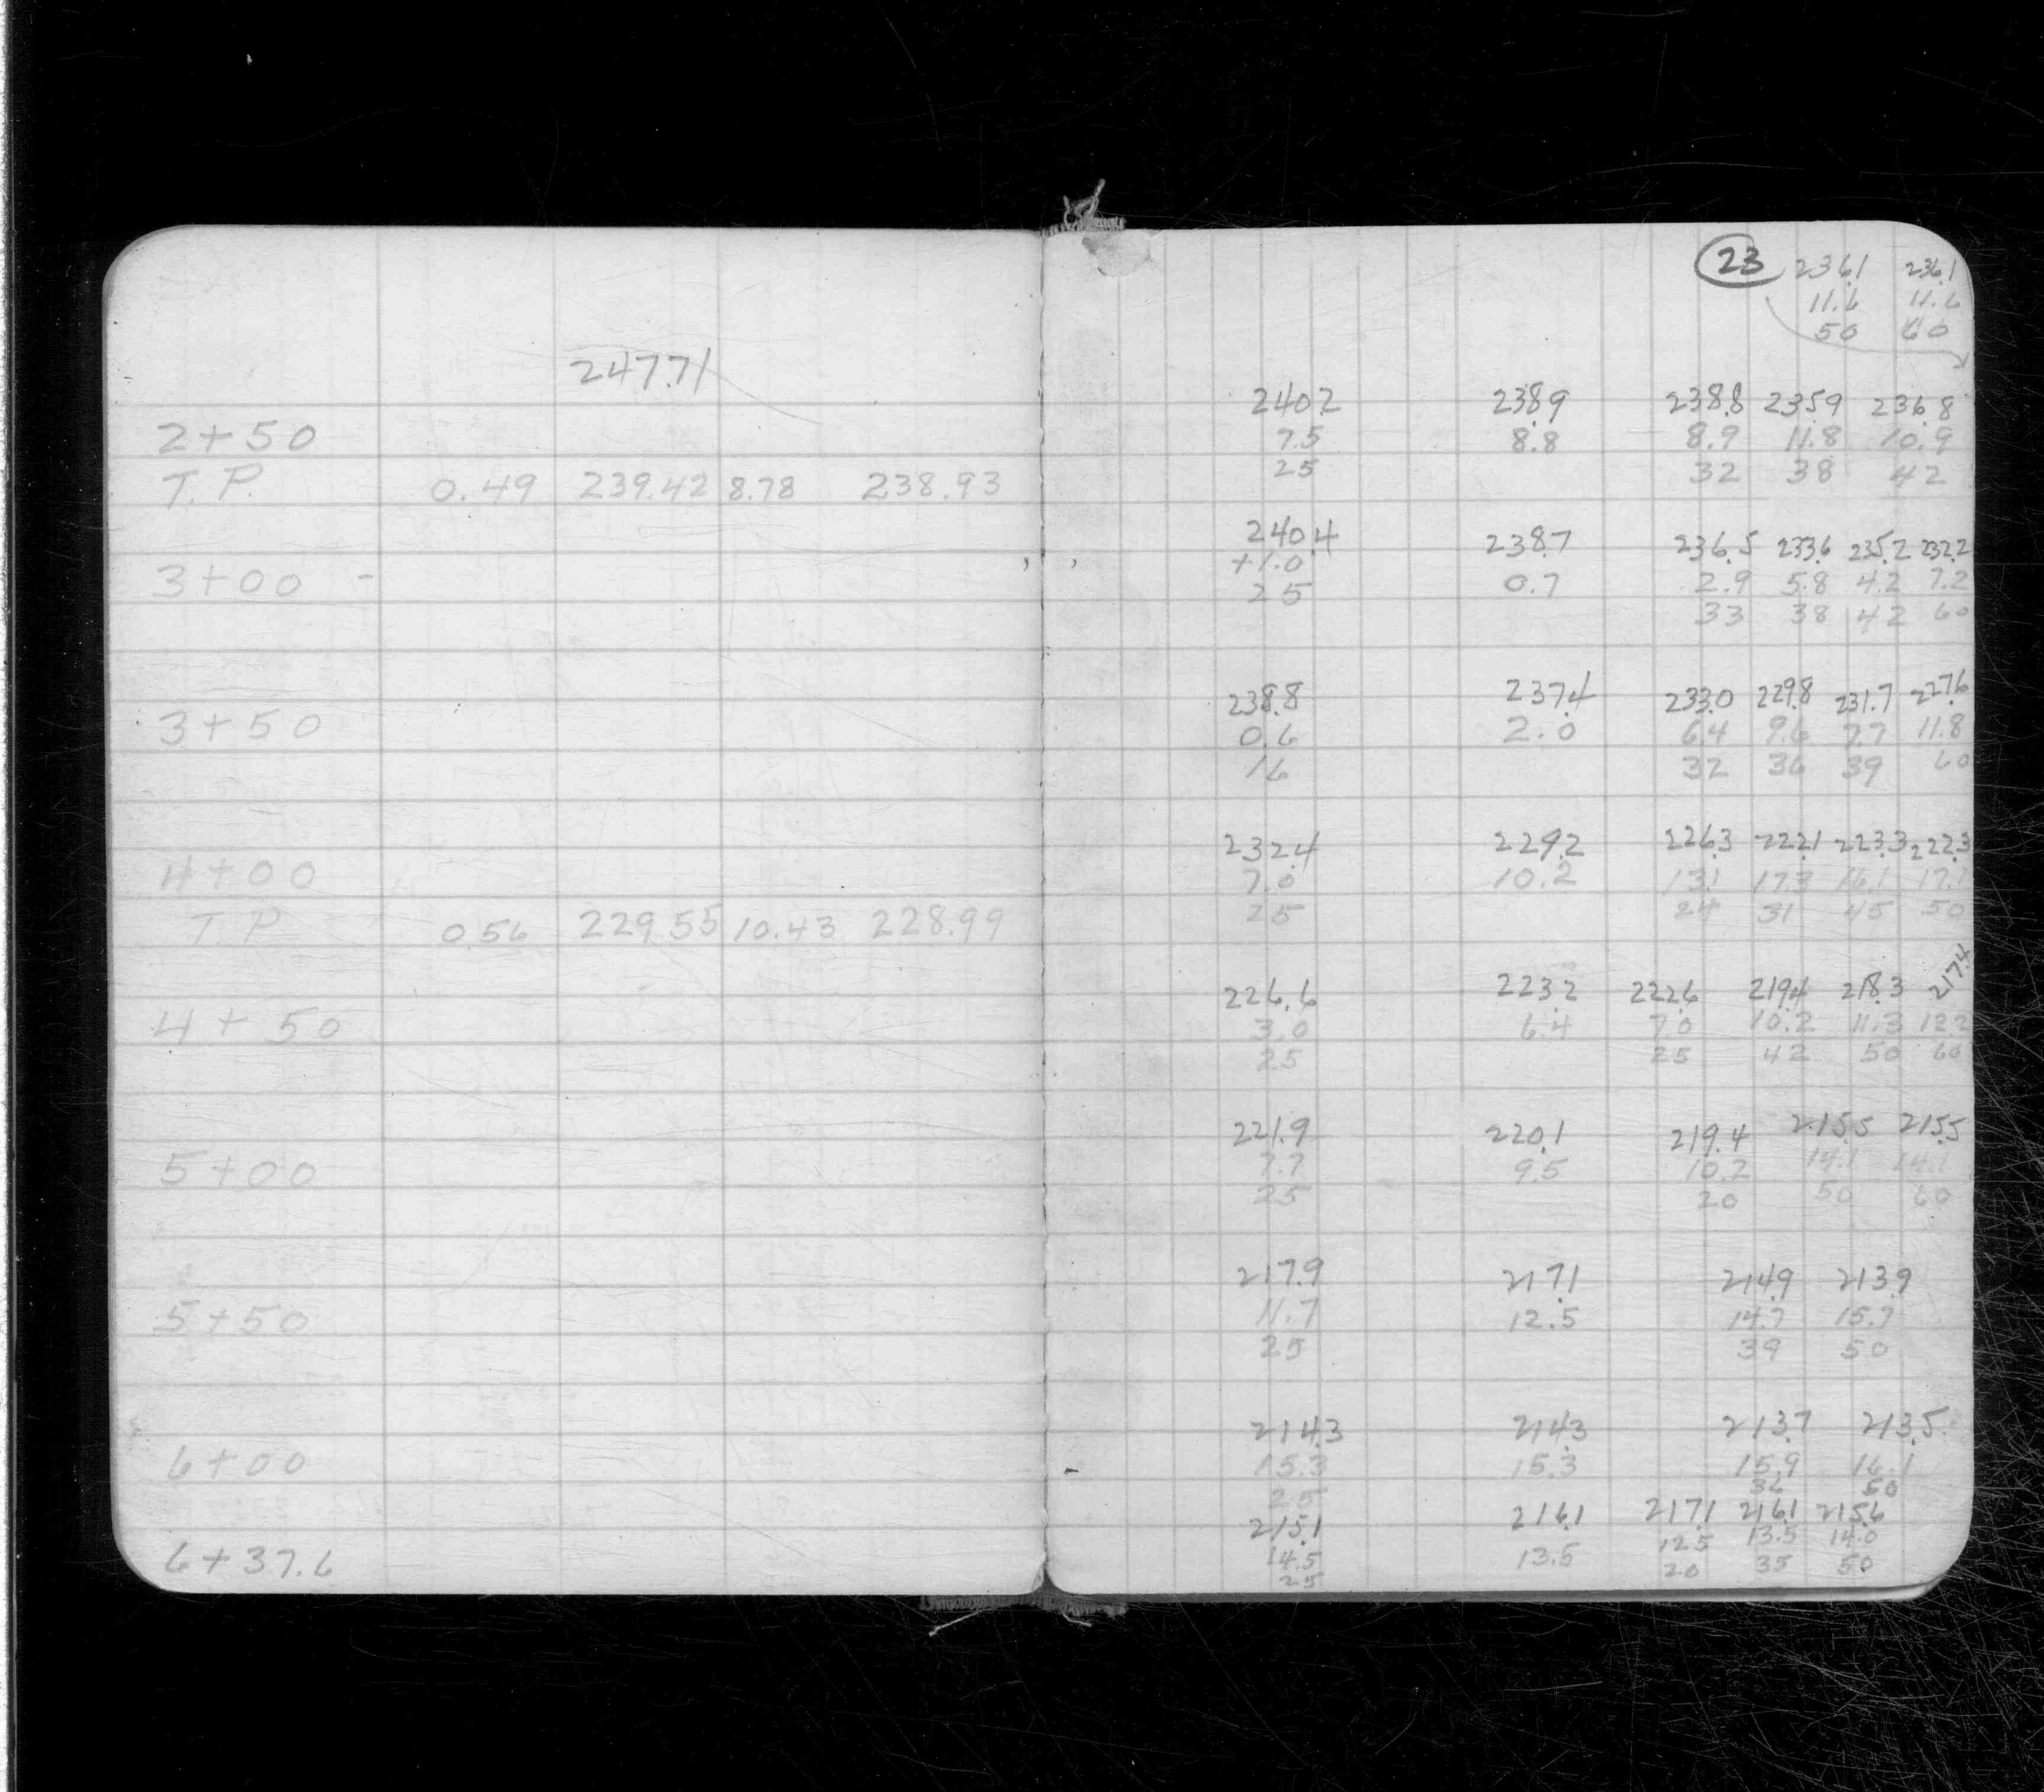 247.71
2+50
T.P. 0.49 239.42 8.78 238.93
3+00 -
3+50
4+00
T.P. 0.56 229.55 10.43 228.99
4+50
5+00
5+50
6+00
6+37.6
23 236.1 236.1
11.6 11.6
50 60
240.2 238.9 238.8 235.9 236.8
7.5 8.8 8.9 11.8 10.9
25 32 38 42
240.4 238.7 236.5 233.6 235.2 232.2
+1.0 0.7 2.9 5.8 4.2 7.2
25 33 38 42 60
238.8 237.4 233.0 229.8 231.7 227.6
0.6 2.0 6.4 9.6 7.7 11.8
16 32 36 39 60
232.4 229.2 226.3 222.1 223.3 222.3
7.0 10.2 13.1 17.3 16.1 17.1
25 24 31 45 50
226.6 223.2 222.6 219.4 218.3 217.4
3.0 6.4 7.0 10.2 11.3 12.2
25 25 42 50 60
221.9 220.1 219.4 215.5 215.5
7.7 9.5 10.2 14.1 14.1
25 20 50 60
217.9 217.1 214.9 213.9
11.7 12.5 14.7 15.7
25 39 50
214.3 214.3 213.7 213.5
15.3 15.3 15.9 16.1
25 36 50
215.1 216.1 217.1 216.1 215.6
14.5 13.5 12.5 13.5 14.0
25 20 35 50